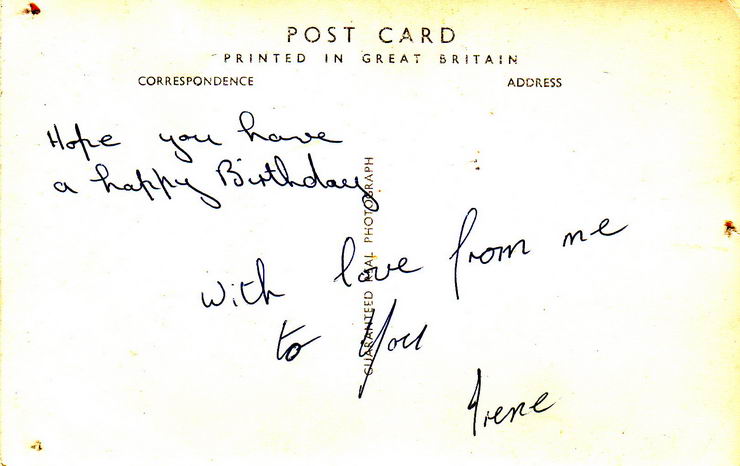 POST CARD
PRINTED IN GREAT BRITAIN
CORRESPONDENCE ADDRESS
Hope you have
a happy Birthday
With love from me
to you
Irene
GUARANTEED REAL PHOTOGRAPH